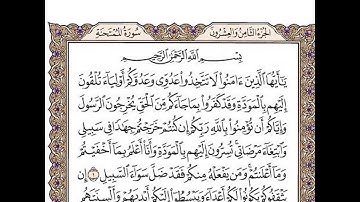 الجزء الثامن والعشرون
سورة الممتحنة
بِسْمِ اللَّهِ الرَّحْمَٰنِ الرَّحِيمِ
يَٰٓأَيُّهَا ٱلَّذِينَ ءَامَنُواْ لَا تَتَّخِذُواْ عَدُوِّي وَعَدُوَّكُمْ أَوْلِيَآءَ تُلْقُونَ
إِلَيْهِم بِٱلْمَوَدَّةِ وَقَدْ كَفَرُواْ بِمَا جَآءَكُم مِّنَ ٱلْحَقِّ يُخْرِجُونَ ٱلرَّسُولَ
وَإِيَّاكُمْ أَن تُؤْمِنُواْ بِٱللَّهِ رَبِّكُمْ إِن كُنتُمْ خَرَجْتُمْ جِهَٰدًا فِي سَبِيلِي
وَٱبْتِغَآءَ مَرْضَاتِي تُسِرُّونَ إِلَيْهِم بِٱلْمَوَدَّةِ وَأَنَا۠ أَعْلَمُ بِمَآ أَخْفَيْتُمْ
وَمَآ أَعْلَنتُمْ وَمَن يَفْعَلْهُ مِنكُمْ فَقَدْ ضَلَّ سَوَآءَ ٱلسَّبِيلِ ١ إِن
يَثْقَفُوكُمْ يَكُونُواْ لَكُمْ أَعْدَآءً وَيَبْسُطُوٓاْ إِلَيْكُمْ أَيْدِيَهُمْ وَأَلْسِنَتَهُم